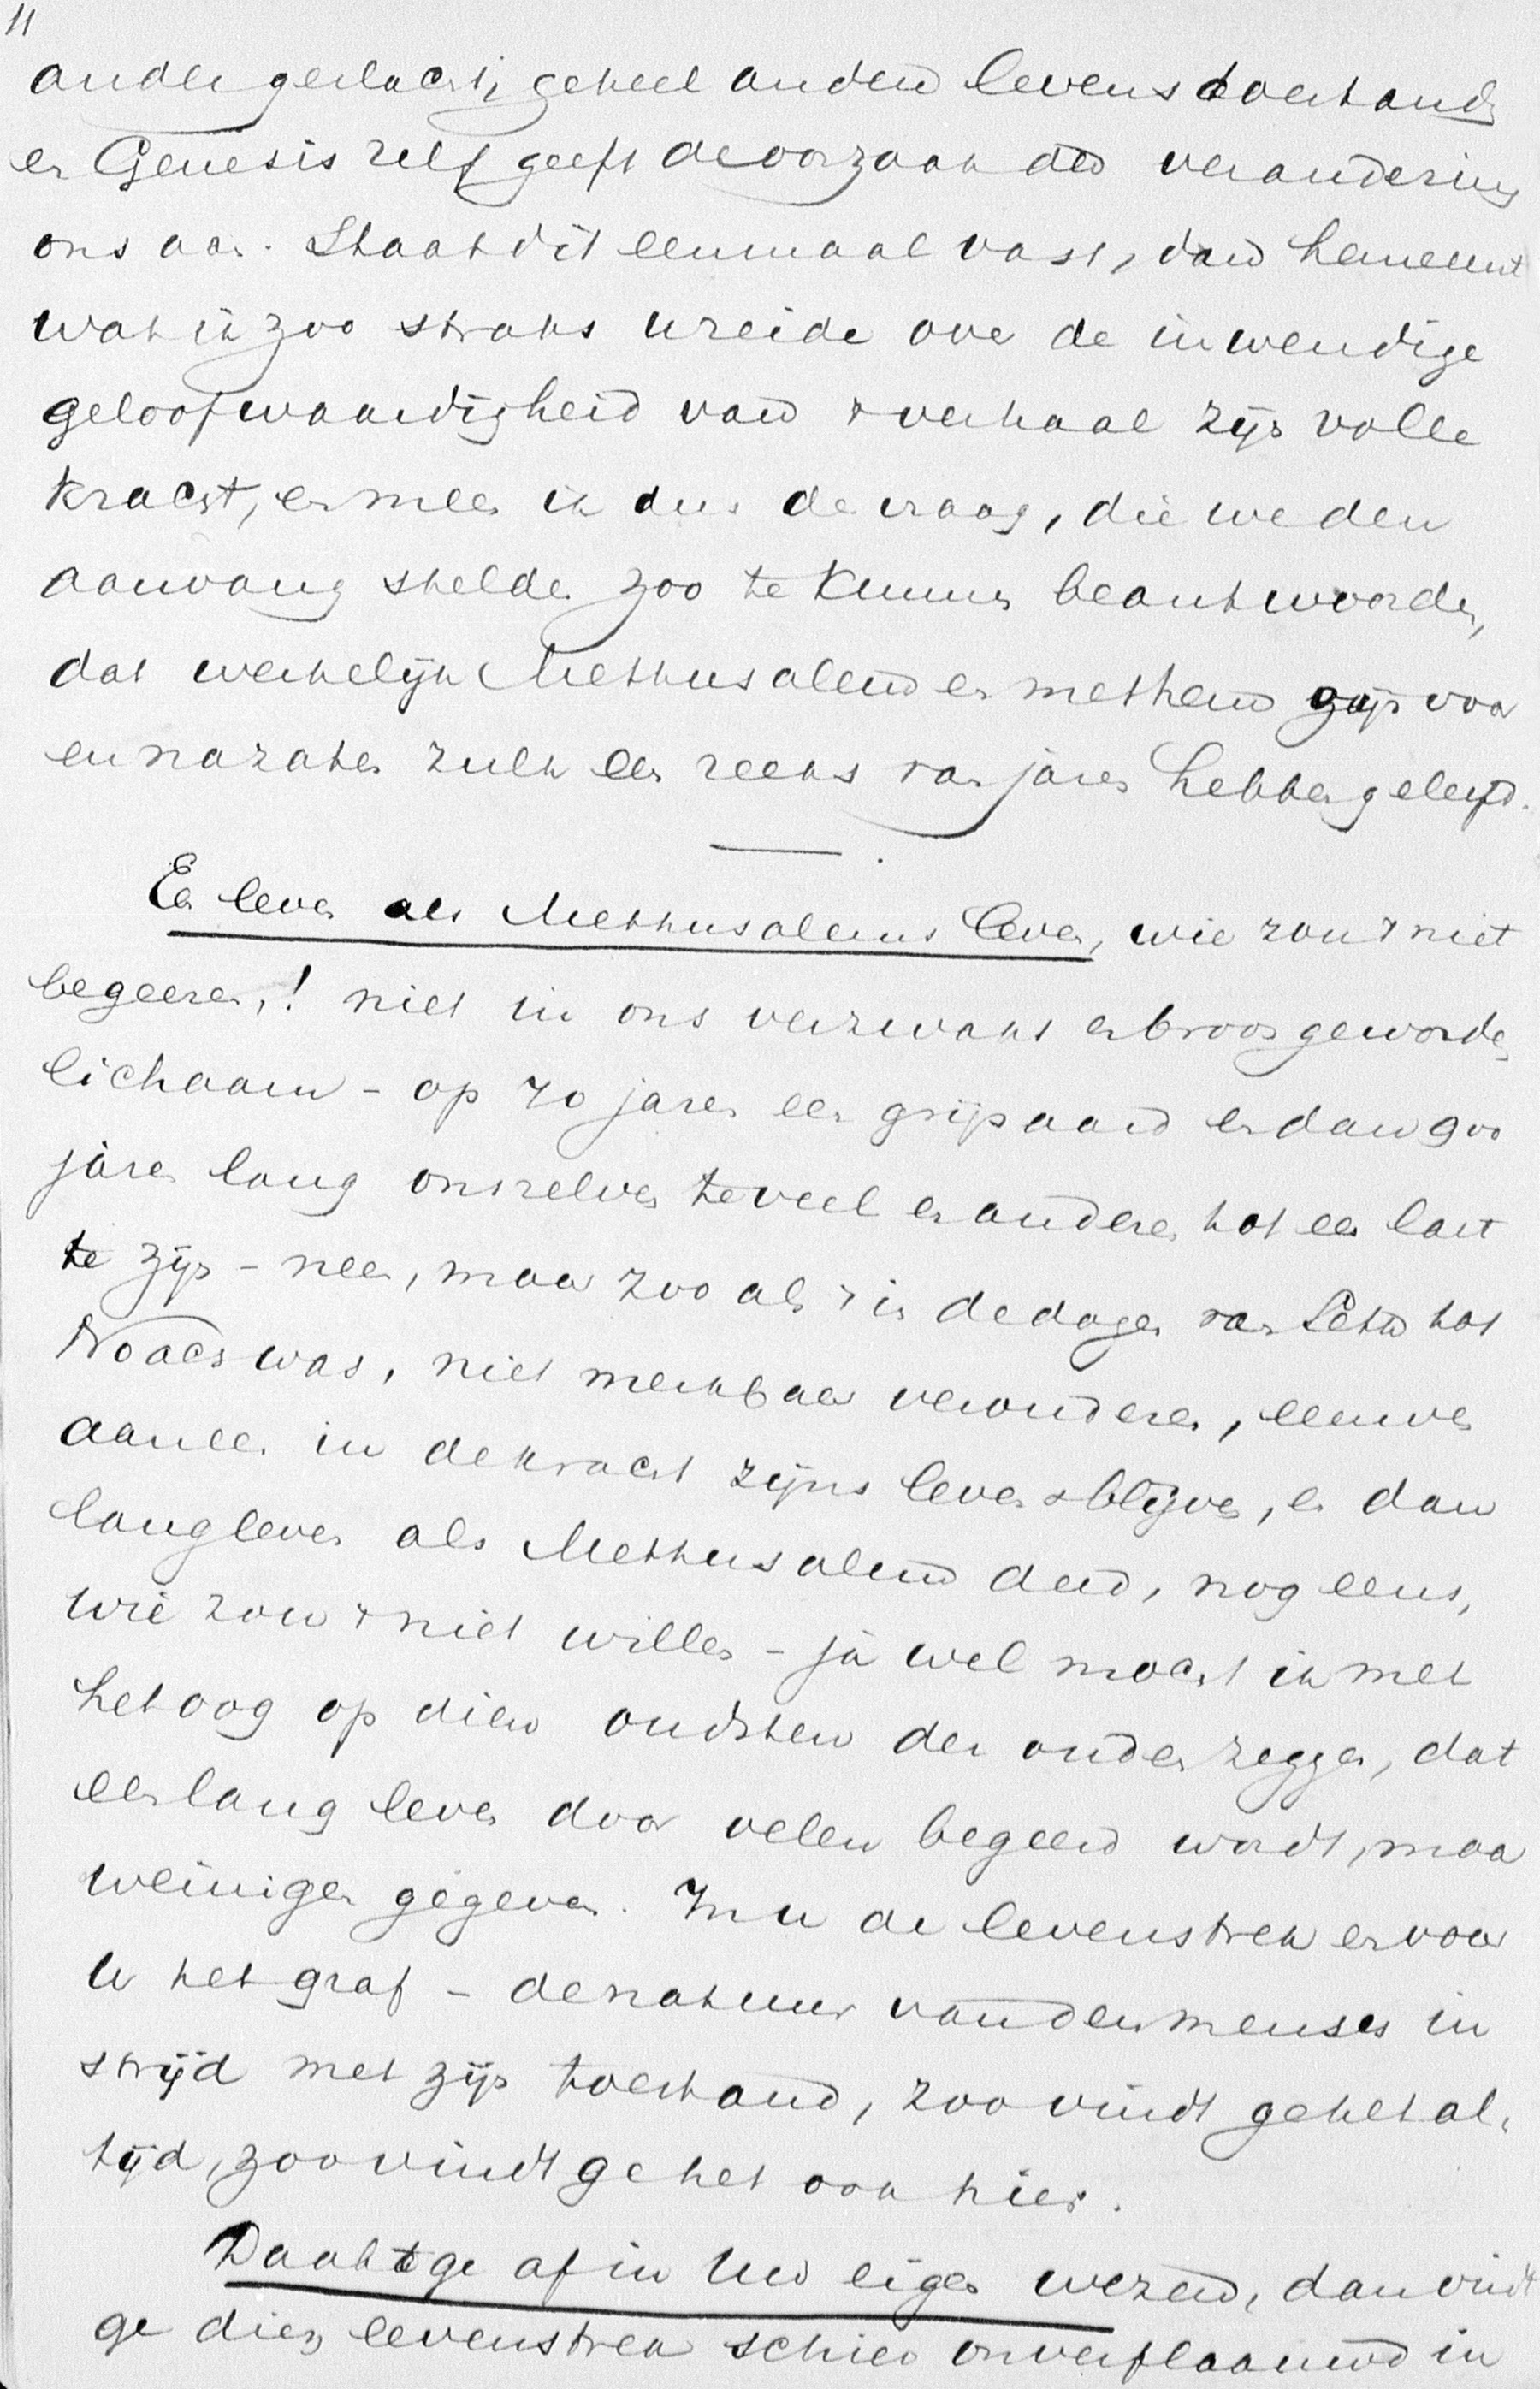 11
ander geslacht, geheel anderen levenstoestand,
en Genesis zelf geeft de oorzaak der verandering
ons aan. Staat dit eenmaal vast, dan herneemt
wat ik zoo straks zeide over de inwendige
geloofwaardigheid van 't verhaal zijn volle
kracht, en meen ik dus de vraag, die we den
aanvang stelden zoo te kunnen beantwoorden,
dat werkelijk Methusalem en met hem zijn voor
en nazaten zulk een reeks van jaren hebben geleefd.
Een leven als Methusalems leven, wie zou 't niet
begeeren,! niet in ons verzwakt en broos geworden
lichaam - op 70 jaren een grijsaard en dan 900
jaren lang onszelven te veel en anderen tot een last
te zijn - neen, maar zoo als 't in de dagen van Seth tot
Noach was, niet merkbaar verouderen, eeuwen
aaneen in de kracht zijns levens blijven, en dan
lang leven als Methusalem deed, nog eens,
wie zou 't niet willen - ja wel mocht ik met
het oog op dien oudsten der ouden zeggen, dat
een lang leven door velen begeerd wordt, maar
weinigen gegeven. In u de levenstrek en voor
u het graf - de natuur van den mensch in
strijd met zijn toestand, zoo vindt ge het al-
tijd, zoo vindt ge het ook hier.
Daalt ge af in Uw eigen wezen, dan vindt
ge dien levenstrek schier onverflaauwd in